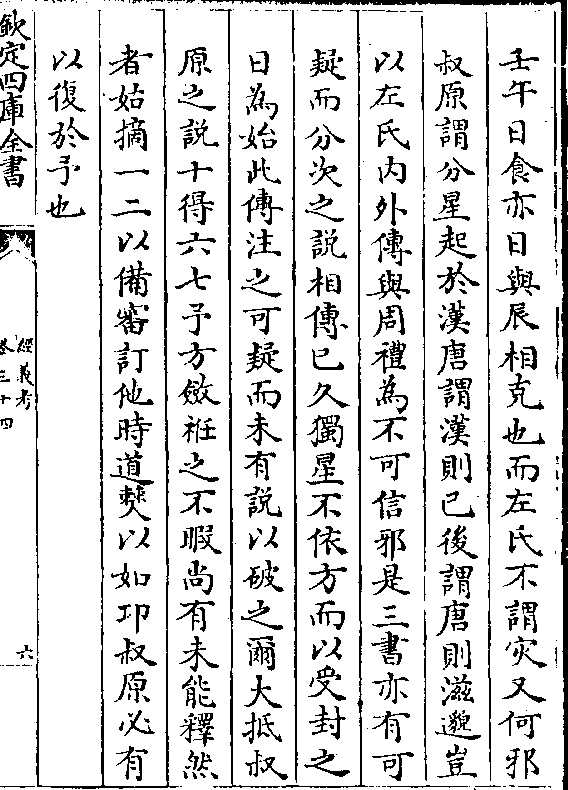 壬午日食亦日與辰相克也而左氏不謂灾又何邪
叔原謂分星起於漢唐謂漢則已後謂唐則滋邈豈
以左氏内外傳與周禮為不可信邪是三書亦有可
疑而分次之説相傳已久獨星不依方而以受封之
日為始此傳注之可疑而未有説以破之爾大抵叔
原之説十得六七予方斂袵之不暇尚有未能釋然
者姑摘一二以備審訂他時道㷀以如邛叔原必有
以復於予也
欽定四庫全書
經義考
卷三十四
六